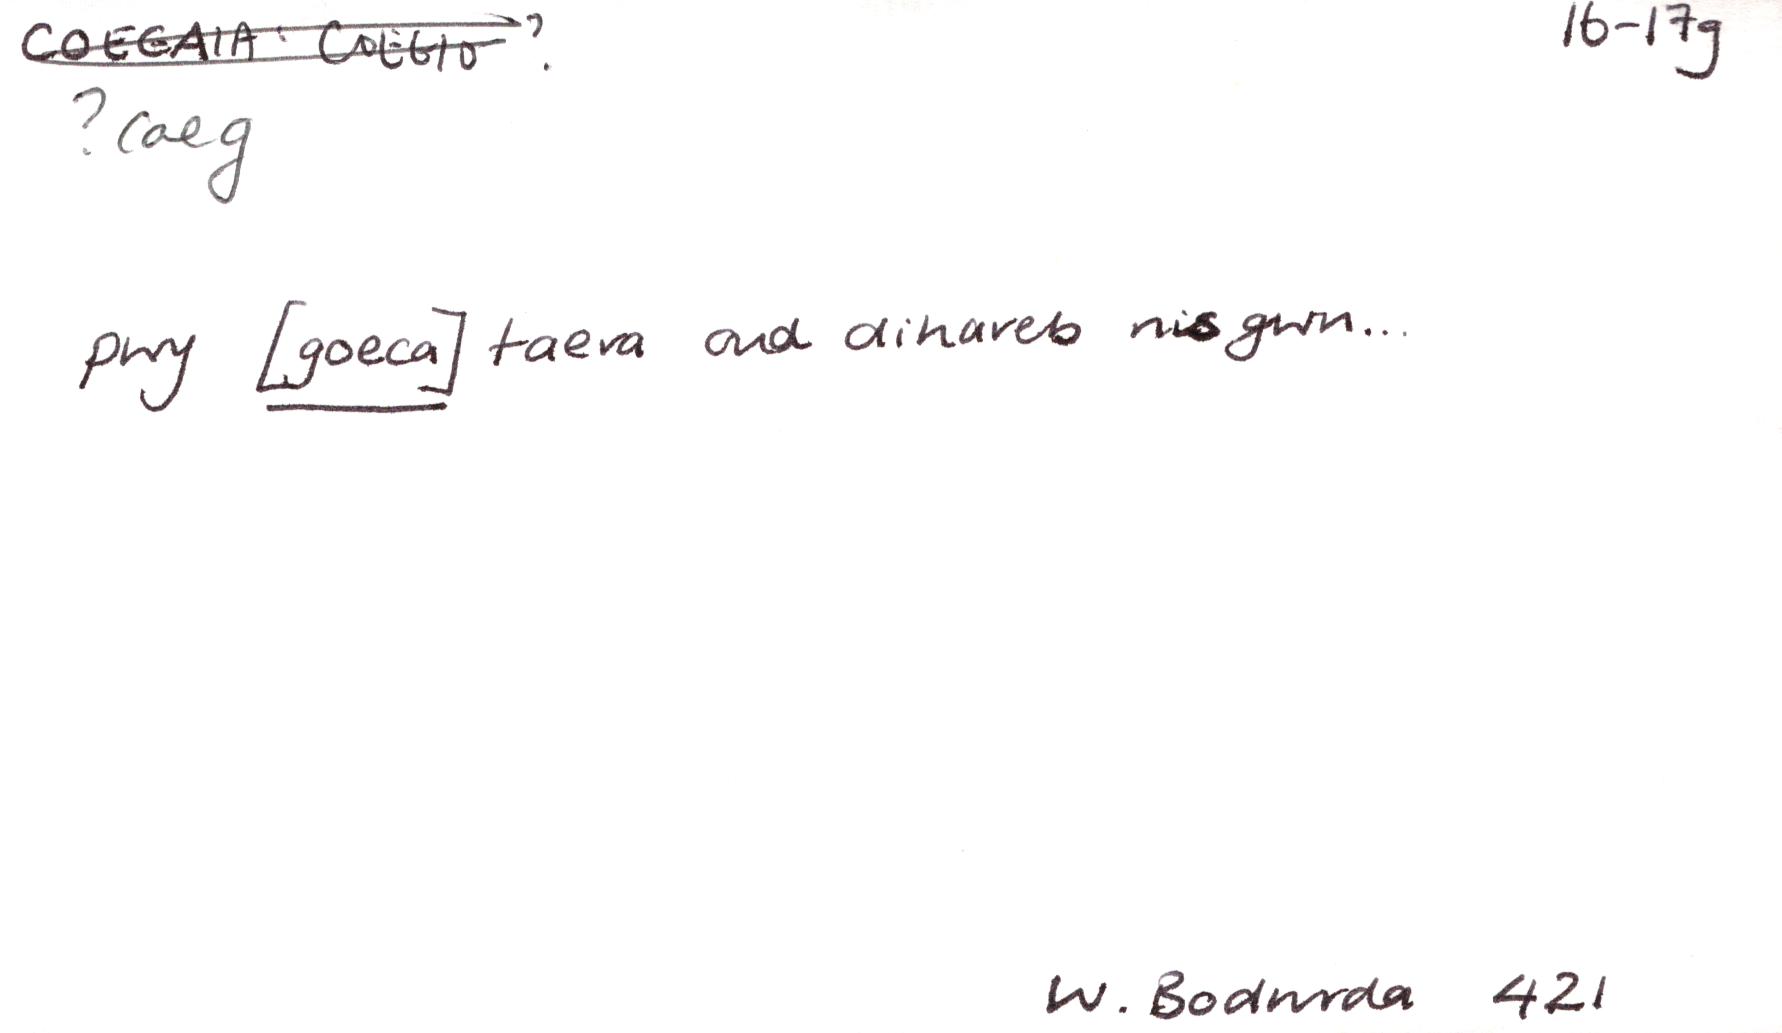 COEGAIA: COEGIO ? 16-17g
? caeg
pwy [goeca] taera ond dihareb nis gwn...
W. Bodwrda 421